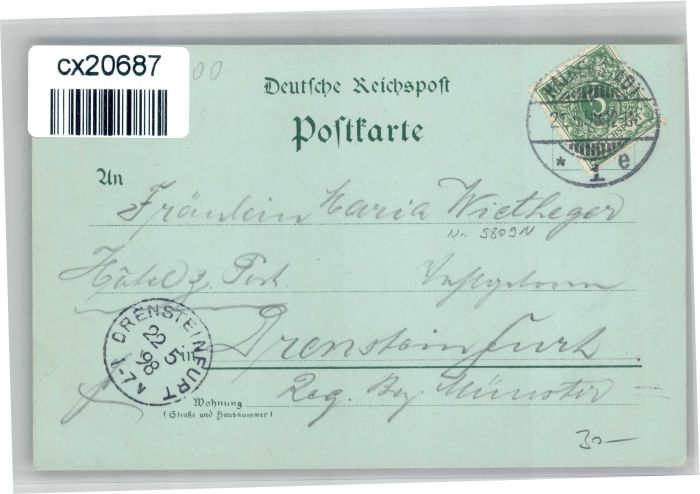 cx20687
Deutsche Reichspost
Postkarte
5
* 1 e
An
Fräulein Maria Wietheger
N. 9809N
Hôtel z. Post
DRENSTEINFURT
22 5
98
* 7-1
in Drensteinfurt
Reg. Bez. Münster
Wohnung
(Straße und Hausnummer)
30-